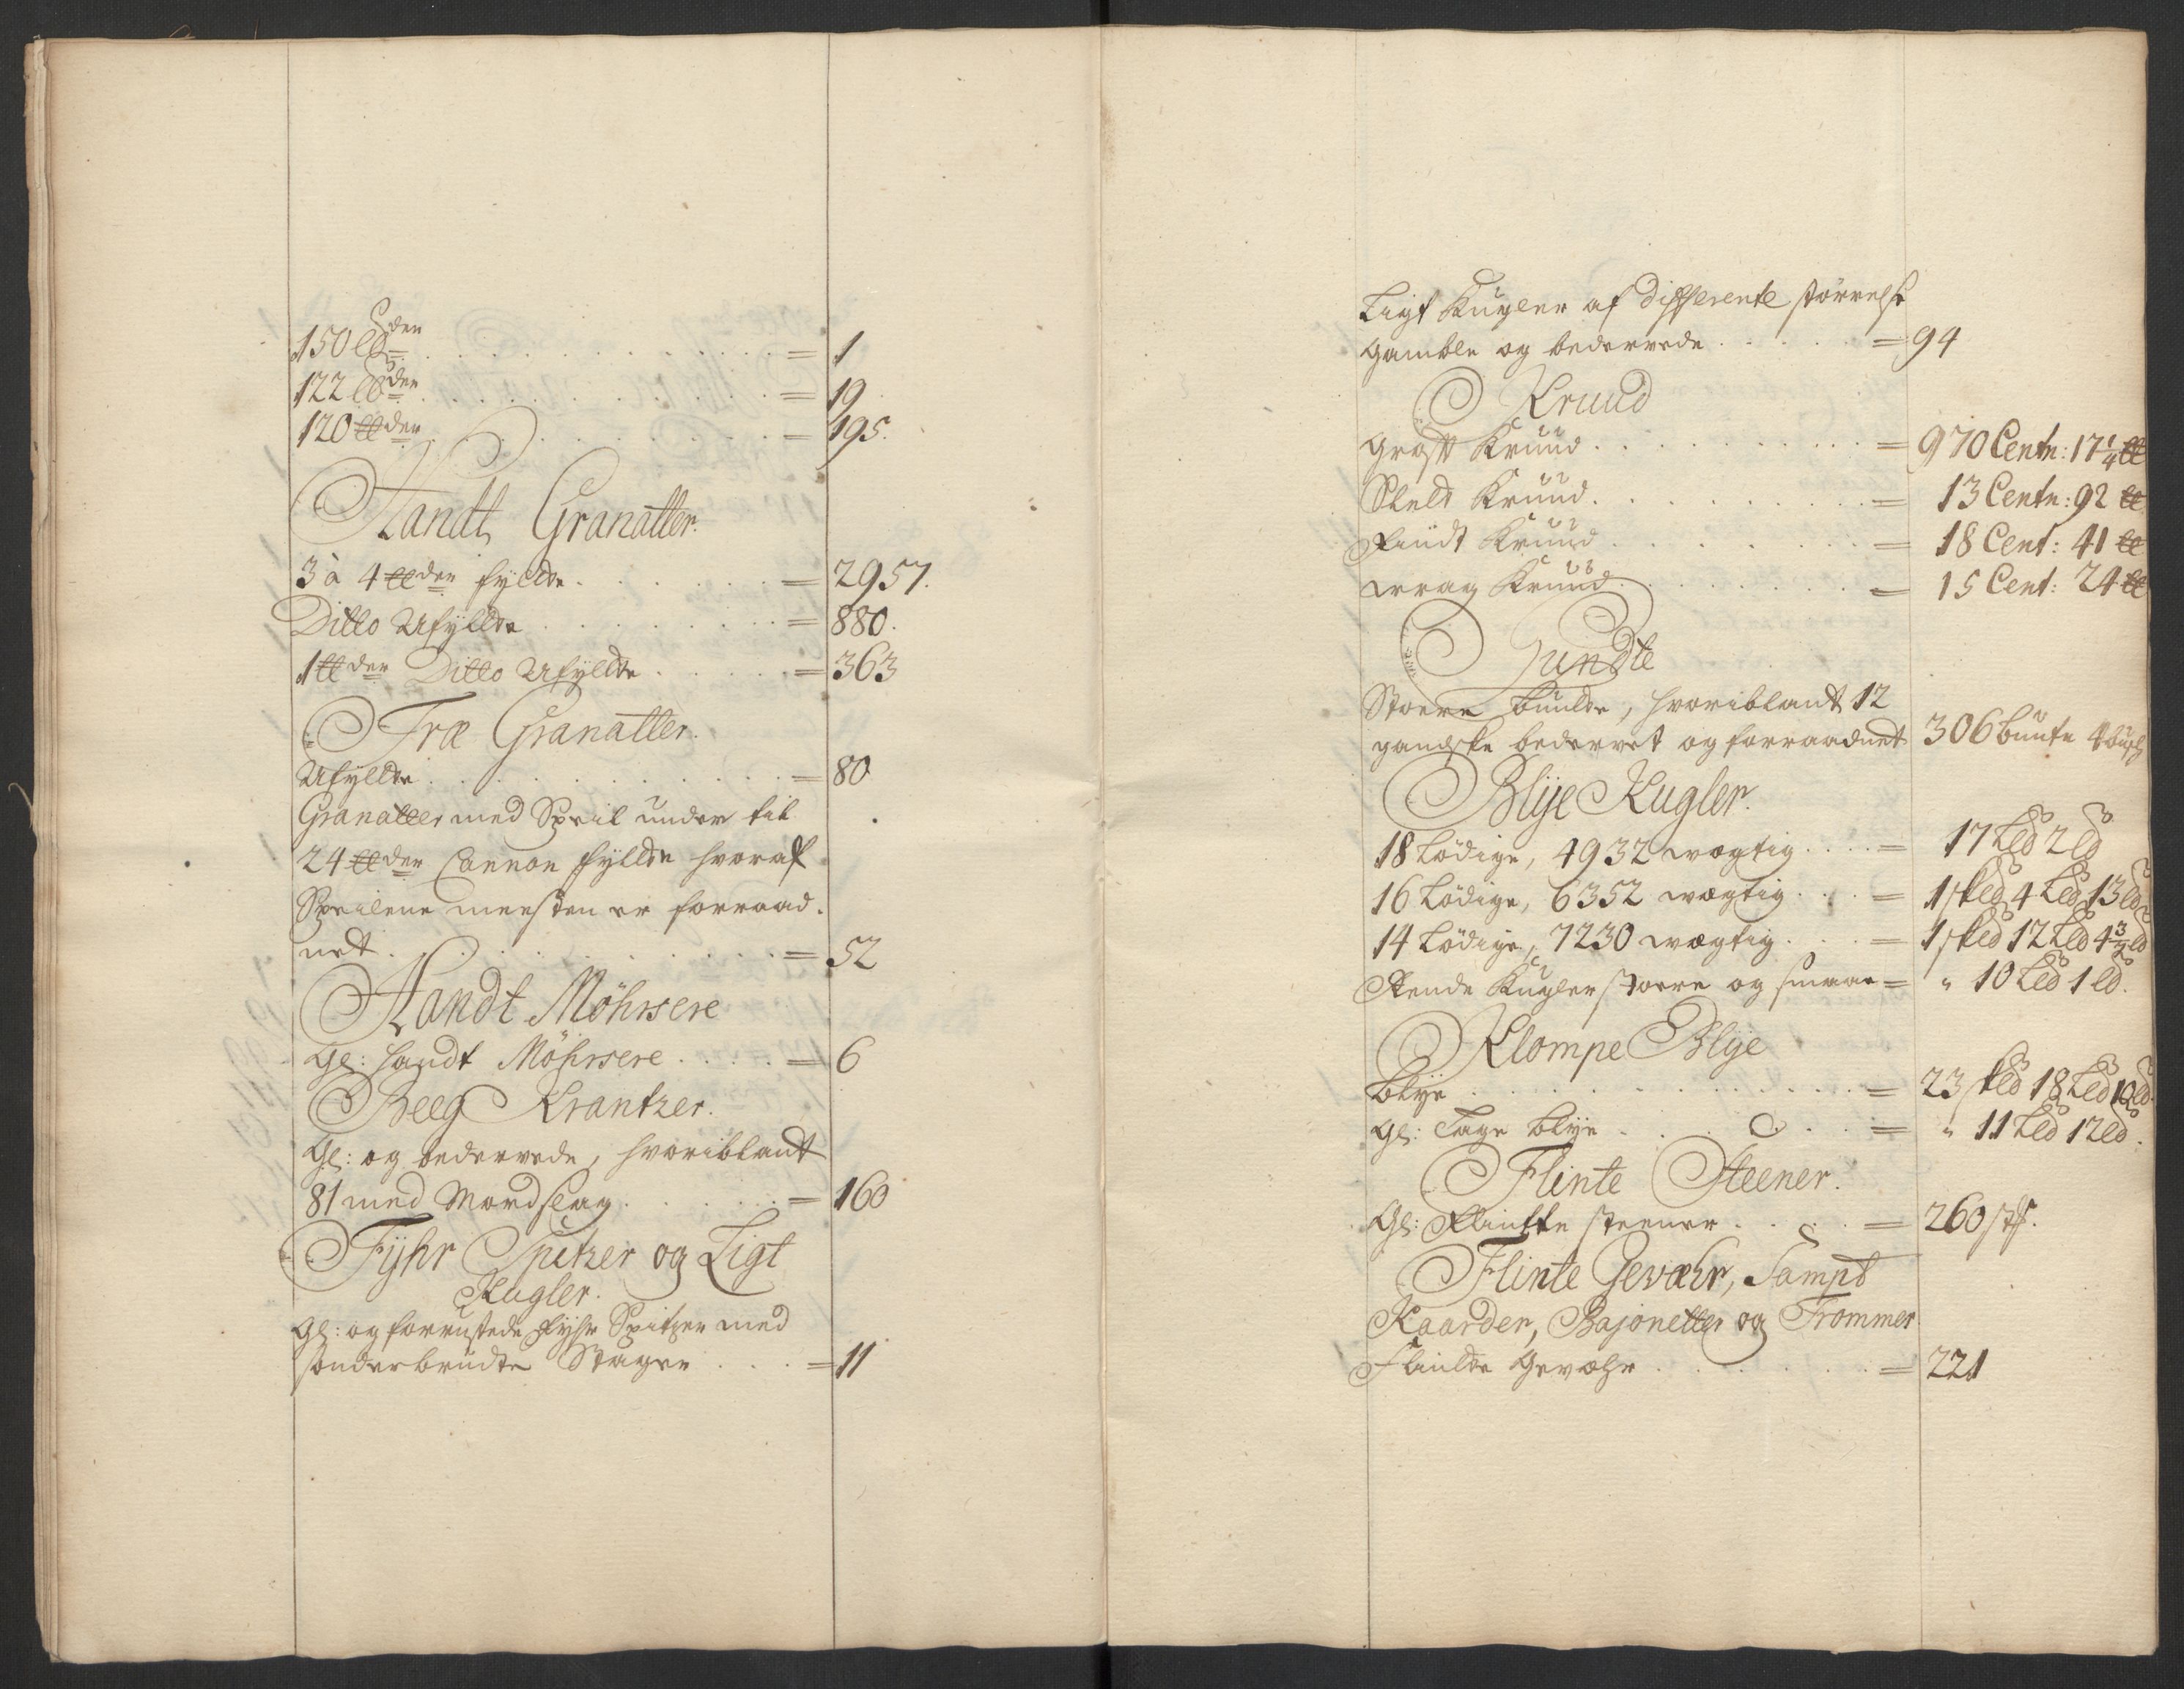 150 ℔den . . . . . = 1
122 ℔den . . . . . = 19
120 ℔den . . . . . = 195.
Handt Granatter.
3 à 4 ℔den fyldte . . . . = 2957.
Ditto Ufyldte . . . . = 880.
1 ℔den Ditto Ufyldte . . . . = 363
Træ Granatter.
Ufyldte . . . . . = 80
Granatter med Speil under til
24 ℔den Cannon fyldte hvoraf
Speilene meesten er forraad-
net . . . . . = 52
Handt Möhrsere
Gl: Handt Möhrsere . . . . = 6
Beeg Krantzer.
Gl: og bedervede, hvoriblant
81 med Mordslag . . . . = 160
Fyhr Spitzer og Ligt
Kugler.
Gl: og forrustede Fyhr Spitzer med
sönderbrudte Stager . . . = 11
Ligt Kugler af differente störrelse
gamble og bedervede . . . . = 94
Kruud
Groft Kruud . . . . = 970 Centn: 17 1/4 ℔
Skeldt Kruud . . . . = 13 Centn: 92 ℔
Fiindt Kruud . . . . = 18 Cent: 41 ℔
Wrag Kruud . . . . = 15 Cent: 24 ℔
Lundte
Stoere bundte, hvoriblant 12
gandske bedervet og forraadnet 306 bundte
Blye Kugler.
18 Lödige, 4932 wægtig . . . . = 17 L℔ 2 ℔
16 Lödige, 6352 wægtig . . . = 1 sk℔ 4 L℔ 13 ℔
14 Lödige, 7230 wægtig . . . = 1 sk℔ 12 L℔ 4 3/4 ℔
Rende Kugler stoere og smaae = " 10 L℔ 1 ℔.
Klompe Blye
Blye . . . . . = 23 sk℔ 18 L℔ 10 ℔.
Gl: Tage blye . . . . = " 11 L℔ 12 ℔.
Flinte Steener.
Gl: Flintte steener . . . . = 260 stk.
Flinte Gevæhr, Sampt
Kaarder, Bajonetter og Trommer
Flindte Gevæhr . . . . = 221